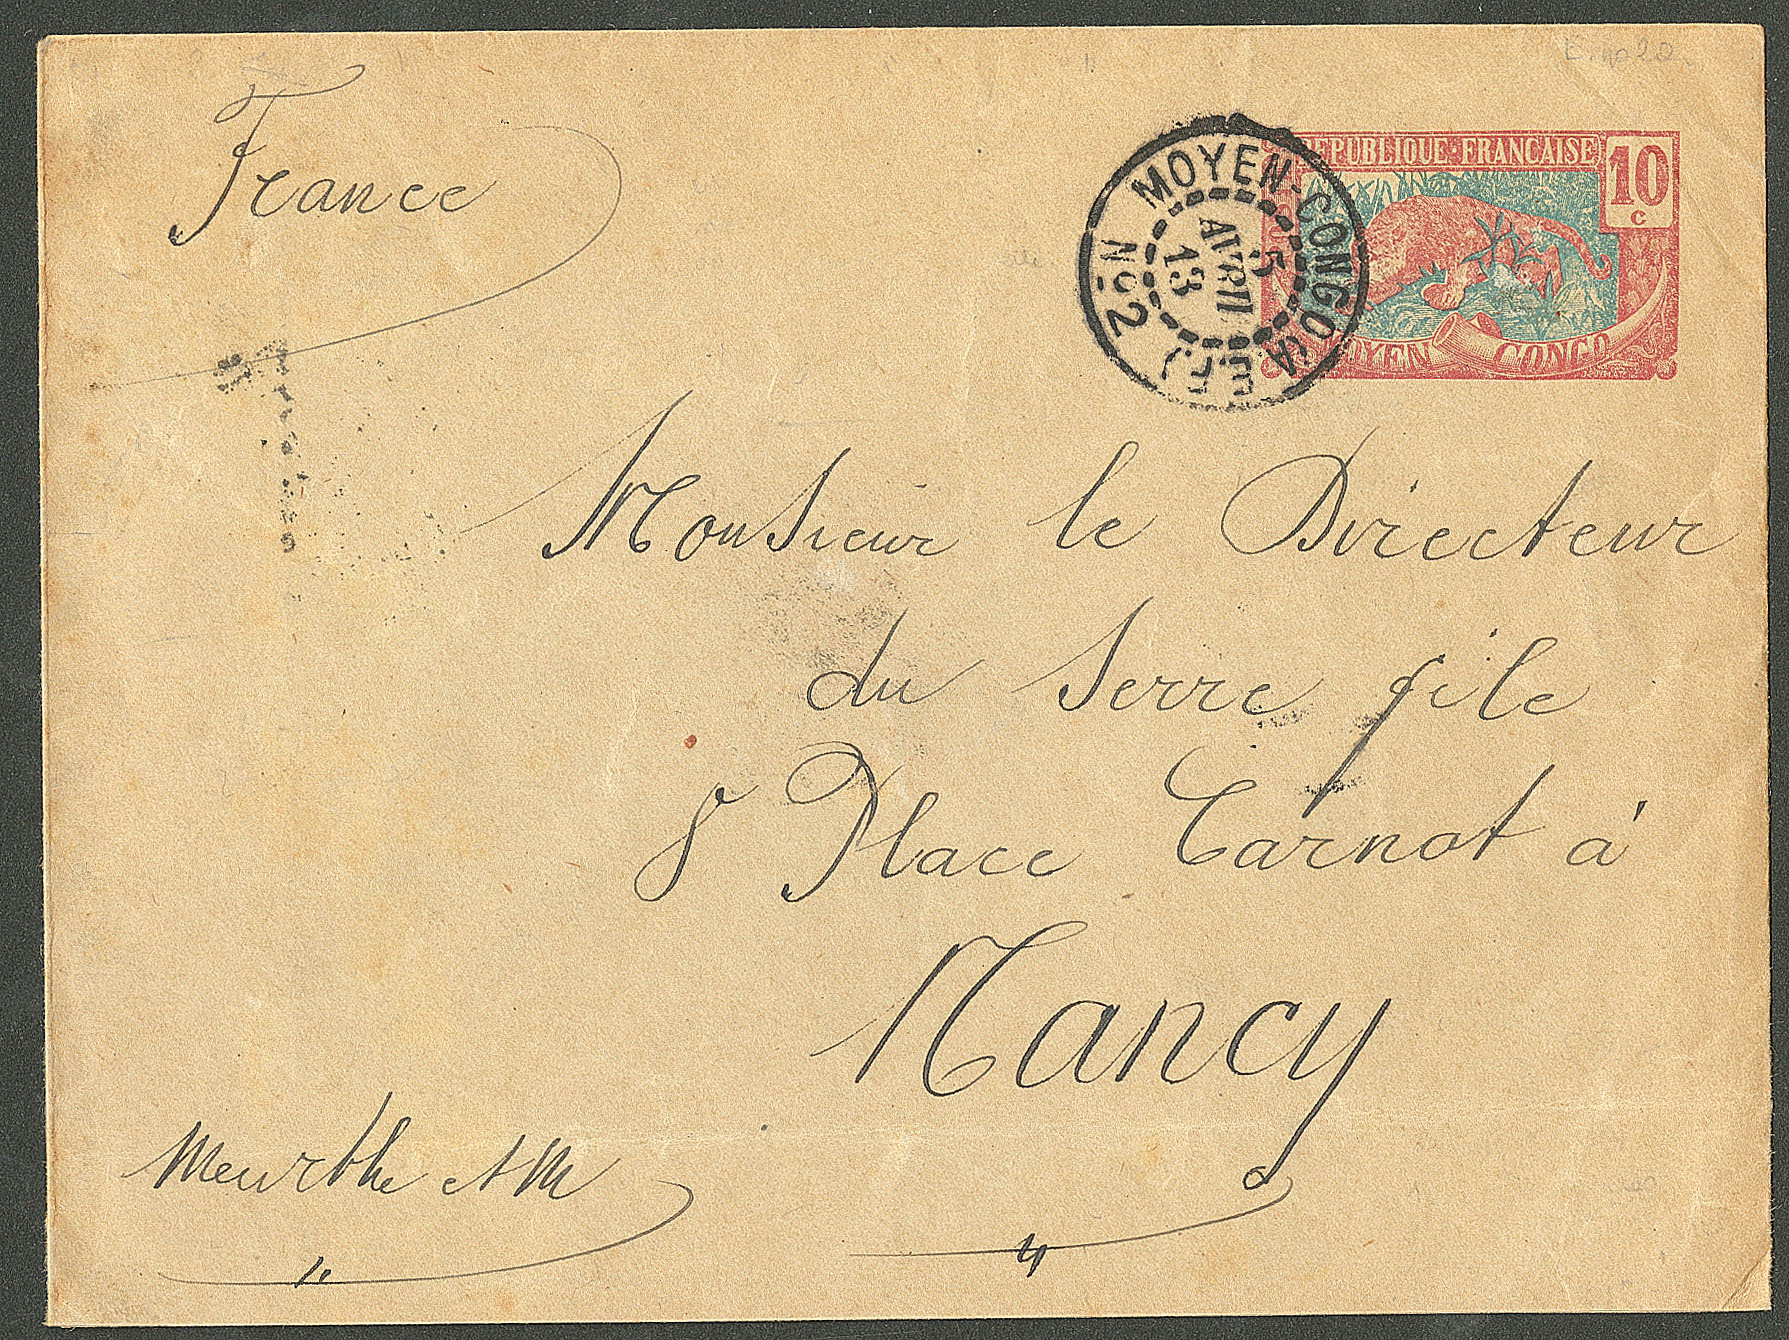 France
RÉPUBLIQUE FRANÇAISE
10
C
MOYEN CONGO
MOYEN-CONGO (A.E.F.)
5
AVRIL
13
No2
Monsieur le Directeur
du Serre file
8 Place Carnot à
Nancy
Meurthe et M